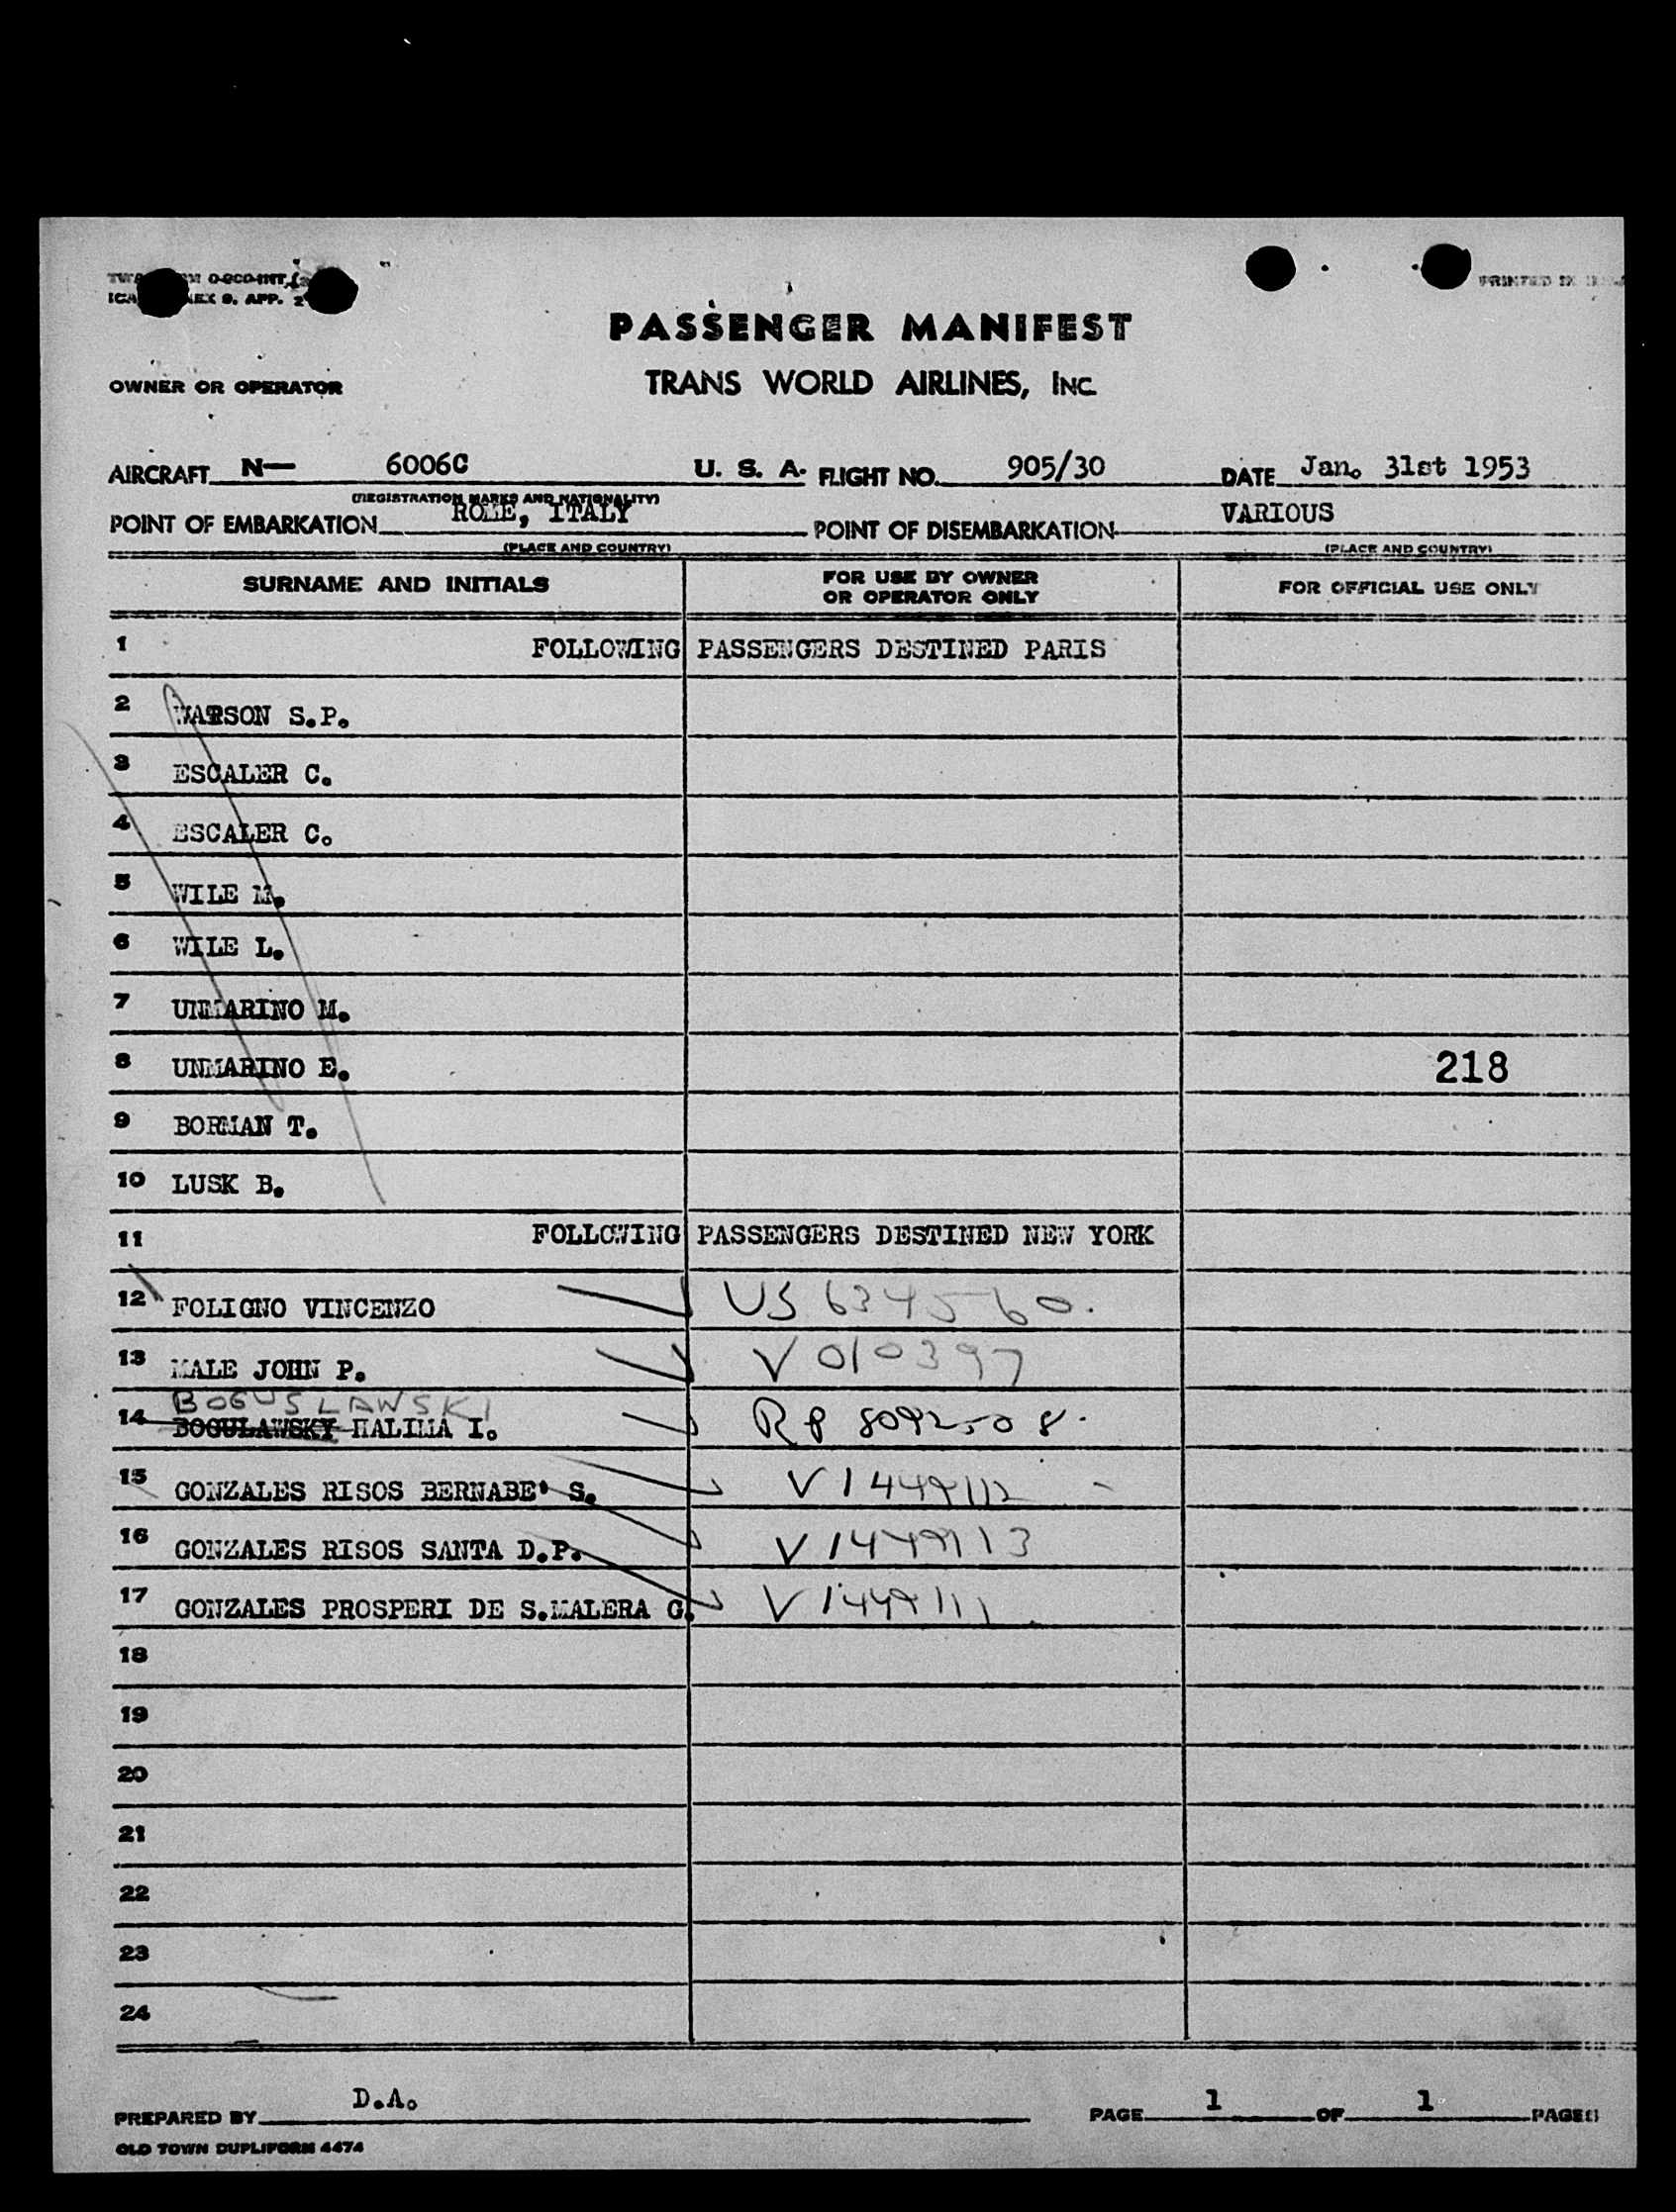 OWNER OR OPERATOR
PASSENGER MANIFEST
TRANS WORLD AIRLINES, INC.
AIRCRAFT N— 6006C U. S. A. FLIGHT NO. 905/30 DATE Jan. 31st 1953
(REGISTRATION MARKS AND NATIONALITY)
POINT OF EMBARKATION ROME, ITALY POINT OF DISEMBARKATION VARIOUS
(PLACE AND COUNTRY) (PLACE AND COUNTRY)
SURNAME AND INITIALS FOR USE BY OWNER OR OPERATOR ONLY FOR OFFICIAL USE ONLY
1 FOLLOWING PASSENGERS DESTINED PARIS
2 S.P.
3 ESCALER C.
4 ESCALER C.
5 WILE M.
6 WILE L.
7 UNMARINO M.
8 UNMARINO E. 218
9 BORMAN T.
10 LUSK B.
11 FOLLOWING PASSENGERS DESTINED NEW YORK
12 FOLIGNO VINCENZO US 634560.
13 MALE JOHN P. V 010397
BOGUSLAWSKI
14 BOGULAWSKY HALINA I. RP 8092508.
15 GONZALES RISOS BERNABE' S. V 1449112
16 GONZALES RISOS SANTA D.P. V 1449113
17 GONZALES PROSPERI DE S.MALERA G. V 1449111
18
19
20
21
22
23
24
PREPARED BY D.A. PAGE 1 OF 1 PAGES
OLD TOWN DUPLIFORM 4474